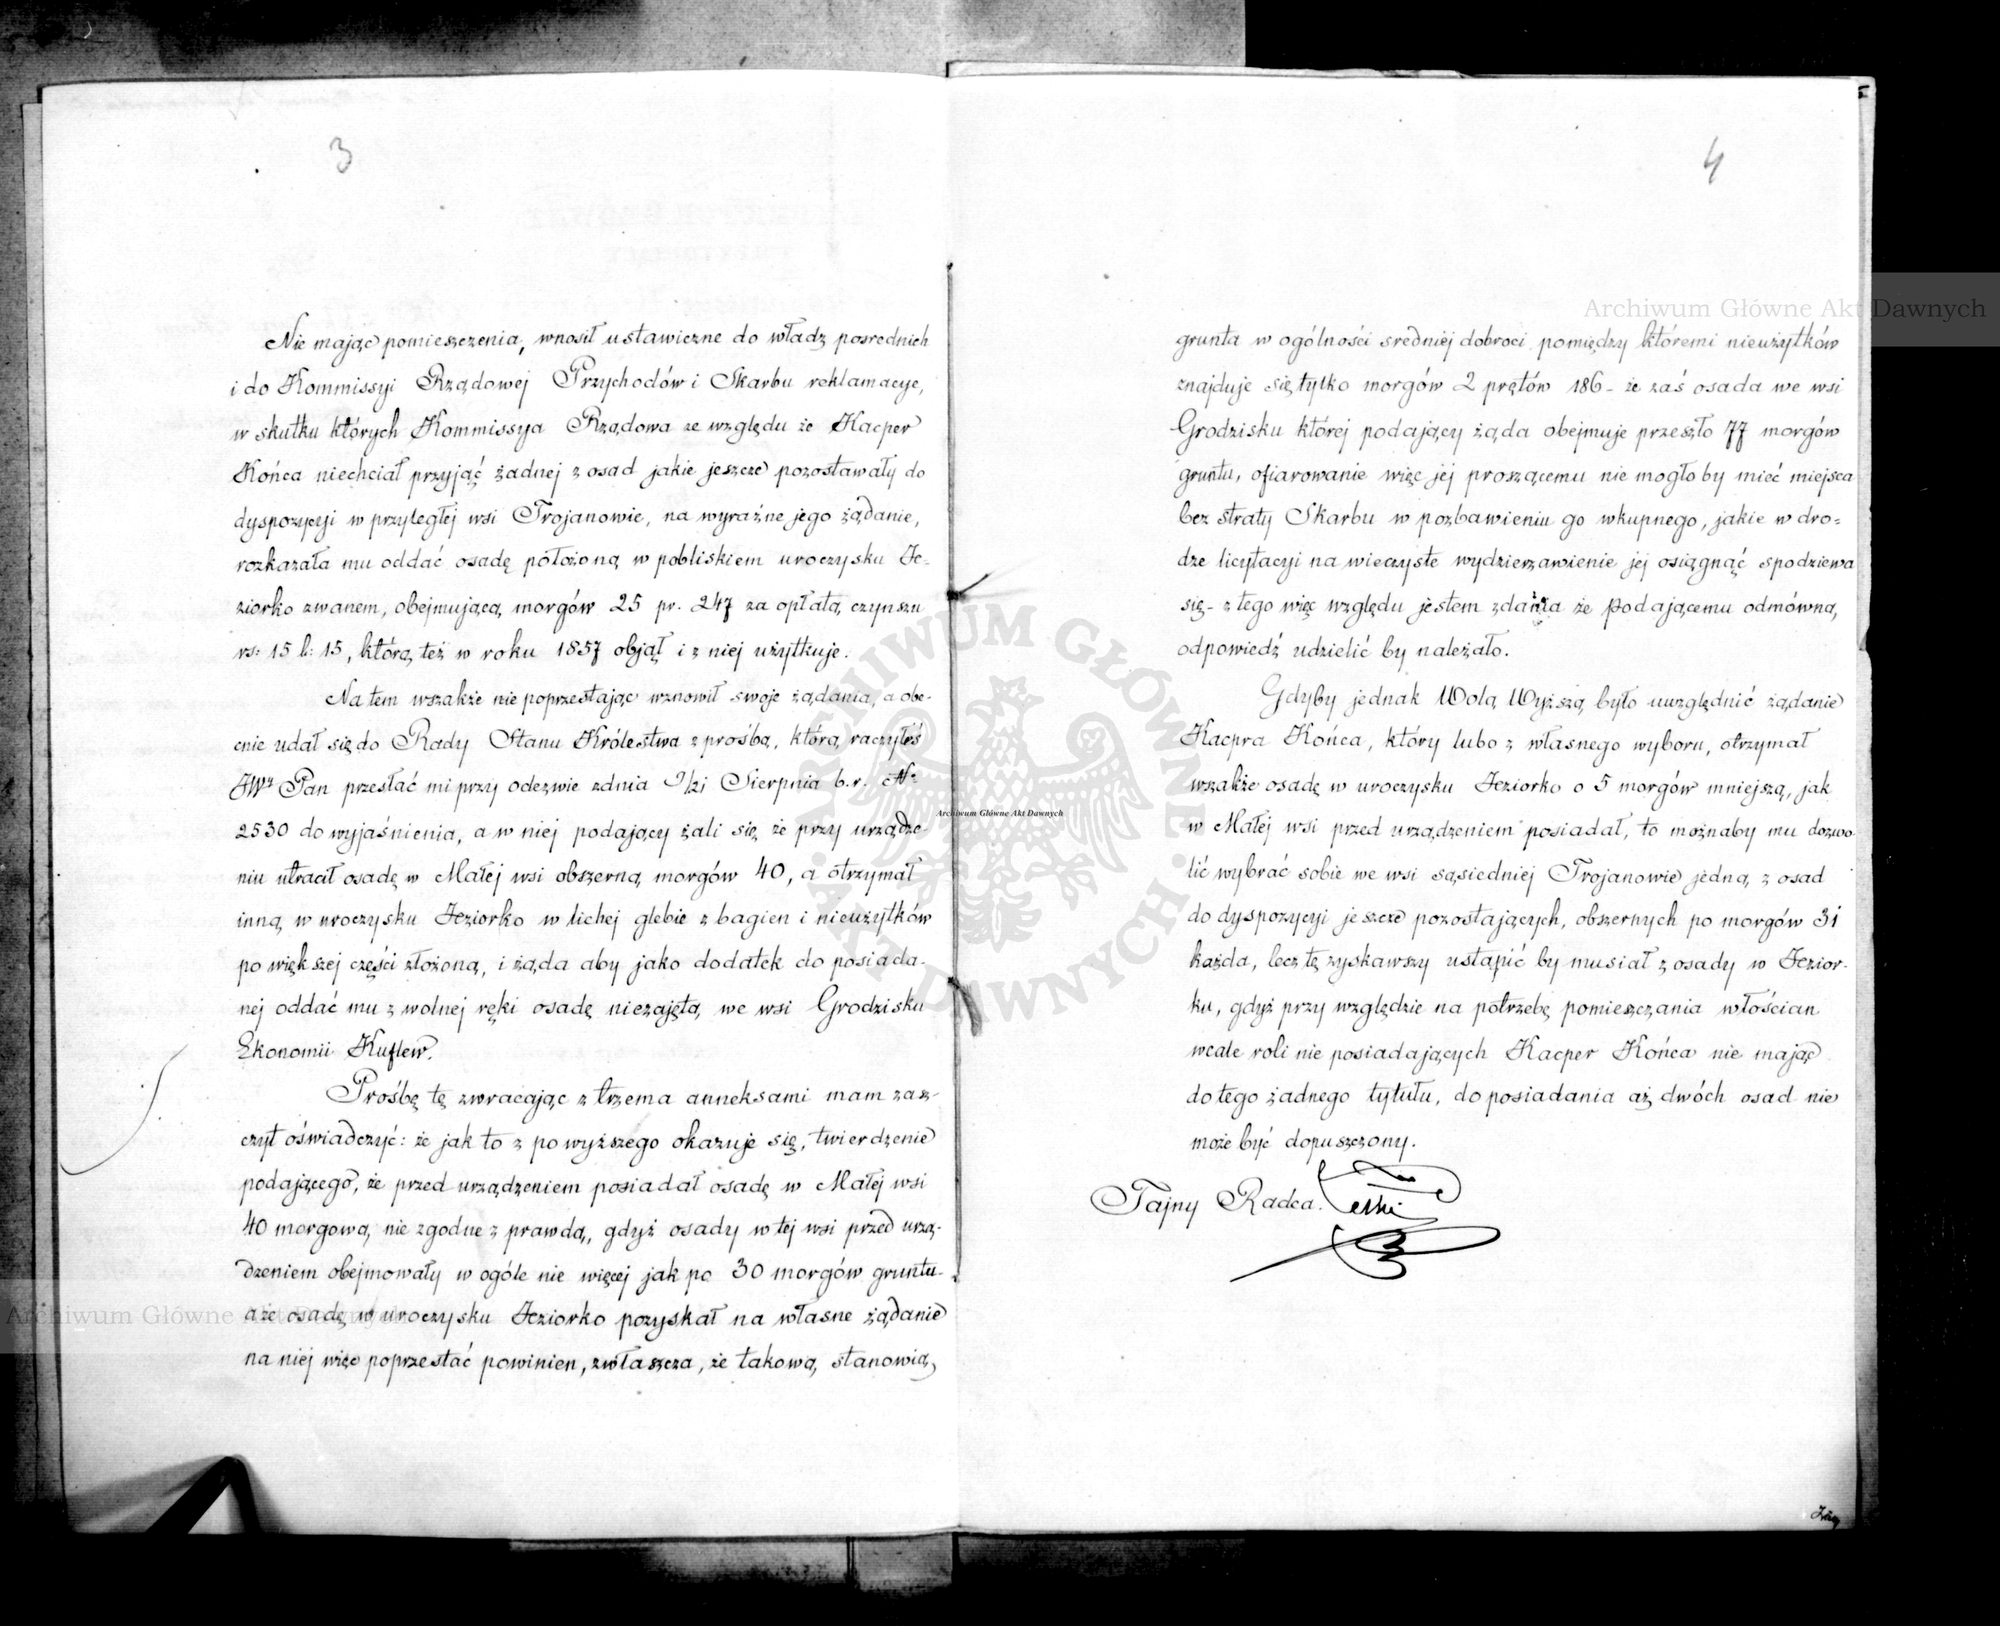 3
Nie mając pomieszczenia, wnosił ustawiczne do władz posrednich
i do Kommissyi Rządowej Przychodów i Skarbu reklamacye,
w skutku których Kommissya Rządowa ze względu że Kacper
Końca niechciał przyjąć żadnej z osad jakie jeszcze pozostawały do
dyspozycyi w przyległej wsi Trojanowie, na wyraźne jego żądanie,
rozkazała mu oddać osadę półożoną w pobliskiem uroczysku Je-
ziorko zwanem, obejmującą morgów 25 pr. 247 za opłatą czynszu
rs: 15 k: 15, którą też w roku 1857 objął i z niej użytkuje.
Na tem wszakże nie poprzestając wznowił swoje żądania, a obe-
cnie udał się do Rady Stanu Królestwa z prośbą, którą raczyłeś
JWy Pan przesłać mi przy odezwie z dnia 9/21 Sierpnia b.r. No
2530 do wyjaśnienia, a w niej podający żali się że przy urządze-
niu utracił osadę w Małej wsi obszerną morgów 40, a otrzymał
inną w uroczysku Jeziorko w lichej glebie z bagien i nieużytków
po większej części złożoną, i żąda aby jako dodatek do posiada-
nej oddać mu z wolnej ręki osadę niezajętą we wsi Grodzisku
Ekonomii Kuflew.
Prośbę tę zwracając z trzema anneksami mam zasz-
czyt oświadczyć: że jak to z powyższego okazuje się, twierdzenie
podającego, że przed urządzeniem posiadał osadę w Małej wsi
40 morgową, nie zgodne z prawdą, gdyż osady w tej wsi przed urzą-
dzeniem obejmowały w ogóle nie więcej jak po 30 morgów gruntu-
a że osadę w uroczysku Jeziorko pozyskał na własne żądanie
na niej więc poprzestać powinien, zwłaszcza, że takową stanowią
4
grunta w ogólności sredniej dobroci pomiędzy któremi nieużytków
znajduje się tylko morgów 2 prętów 186 - że zaś osada we wsi
Grodzisku której podający żąda obejmuje przeszło 77 morgów
gruntu, ofiarowanie więc jej proszącemu nie mogło by mieć miejsca
bez straty Skarbu w pozbawieniu go wkupnego, jakie w dro=
dze licytacyi na wieczyste wydzierzawienie jej osiągnąć spodziewa
się - z tego więc względu jestem zdania że podającemu odmówną
odpowiedź udzielić by należało.
Gdyby jednak Wolą Wyższą było uwzględnić żądanie
Kacpra Końca, który lubo z własnego wyboru, otrzymał
wszakże osadę w uroczysku Jeziorko o 5 morgów mniejszą, jak
w Małej wsi przed urządzeniem posiadał, to możnaby mu dozwo-
lić wybrać sobie we wsi sąsiedniej Trojanowie jedną z osad
do dyspozycyi jeszcze pozostających, obszernych po morgów 31
każda, lecz tę zyskawszy ustąpić by musiał z osady w Jezior-
ku, gdyż przy względzie na potrzebę pomieszczania włościan
wcale roli nie posiadających Kacper Końca nie mając
do tego żadnego tytułu, do posiadania aż dwóch osad nie
może być dopuszczony.
Tajny Radca.
Archiwum Główne Akt Dawnych
Archiwum Główne Akt Dawnych
Archiwum Główne Akt Dawnych
ARCHIWUM GŁÓWNE
AKT DAWNYCH